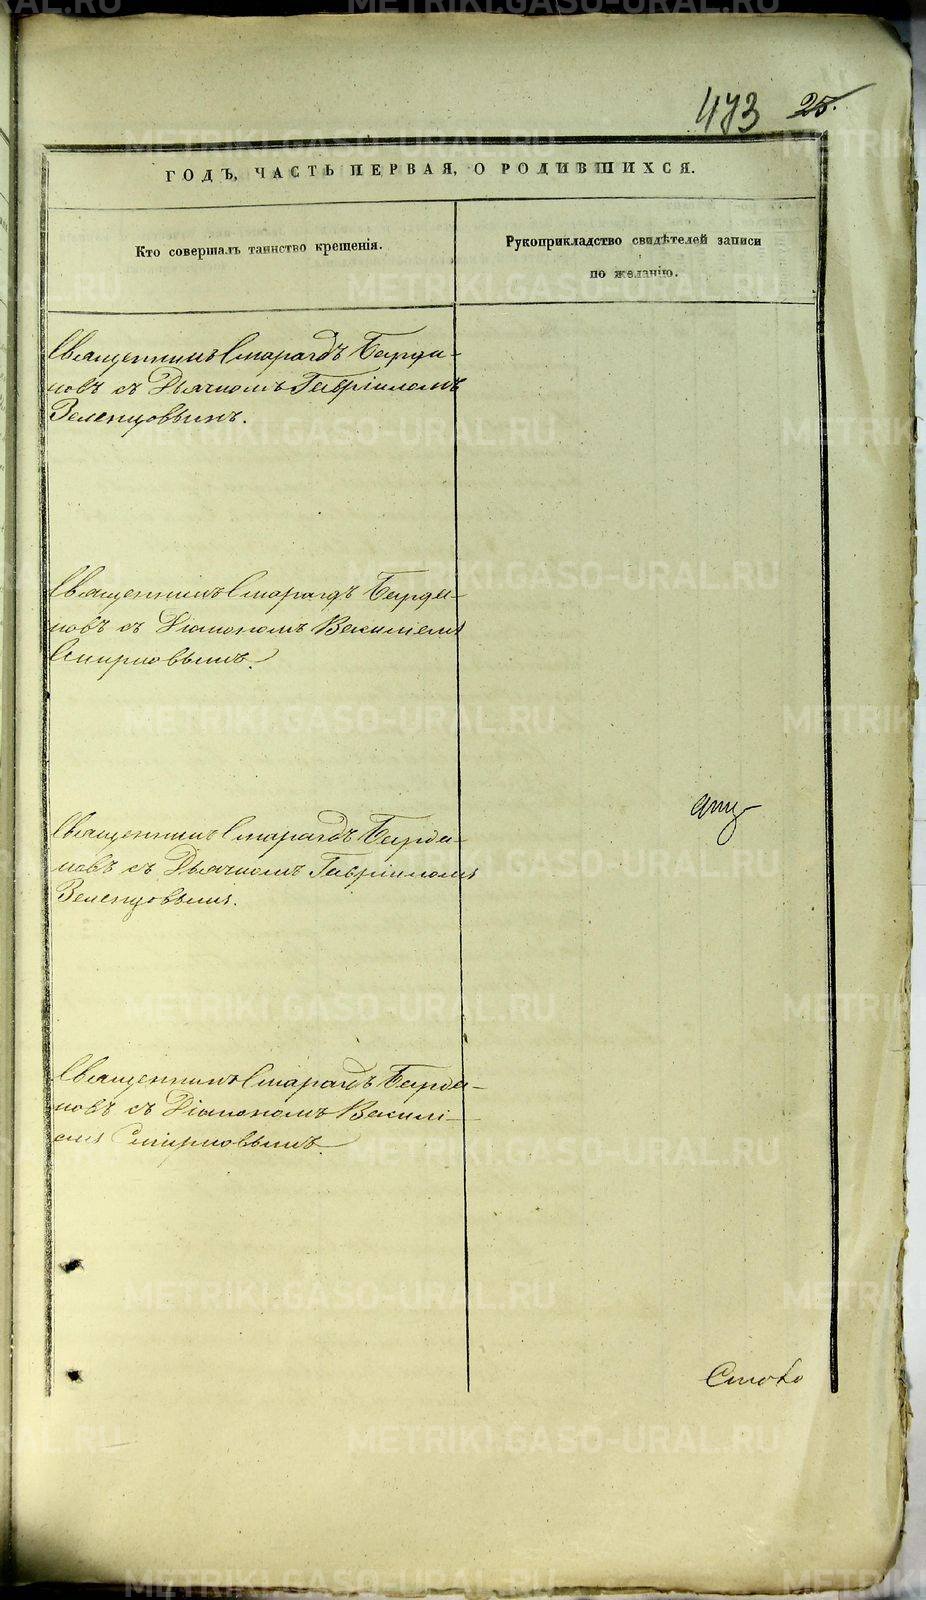 473 25.
ГОДЪ, ЧАСТЬ ПЕРВАЯ, О РОДИВШИХСЯ.
Кто совершалъ таинство крещенія.
Рукоприкладство свидѣтелей записи
по желанію.
Священникъ Смарагдъ Барда-
новъ съ Дьячкомъ Гавріиломъ
Зеленцовымъ.
Священникъ Смарагдъ Барда-
новъ съ Діакономъ Василіемъ
Смирновымъ.
Священникъ Смарагдъ Барда-
новъ съ Дьячкомъ Гавріиломъ
Зеленцовымъ.
Священникъ Смарагдъ Барда-
новъ съ Діакономъ Василі-
емъ Смирновымъ.
METRIKI.GASO-URAL.RU